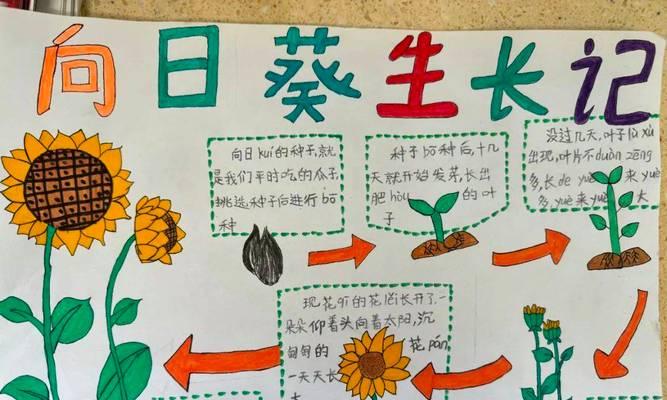 向日葵生长记
向日kuí的种子,就
是我们平时吃的瓜子,
挑选种子后进行bō
种
种子bō种后,十几
天就开始发芽,长出
肥hòu的叶
子
没过几天,叶子lù xù
出现,叶片不duàn zēng
多,长de yuè来yuè
多,yuè来yuè大
现花qī的花lěi长开了,一
朵朵仰着头向着太阳,沉
甸甸的花pán
一天天长
大